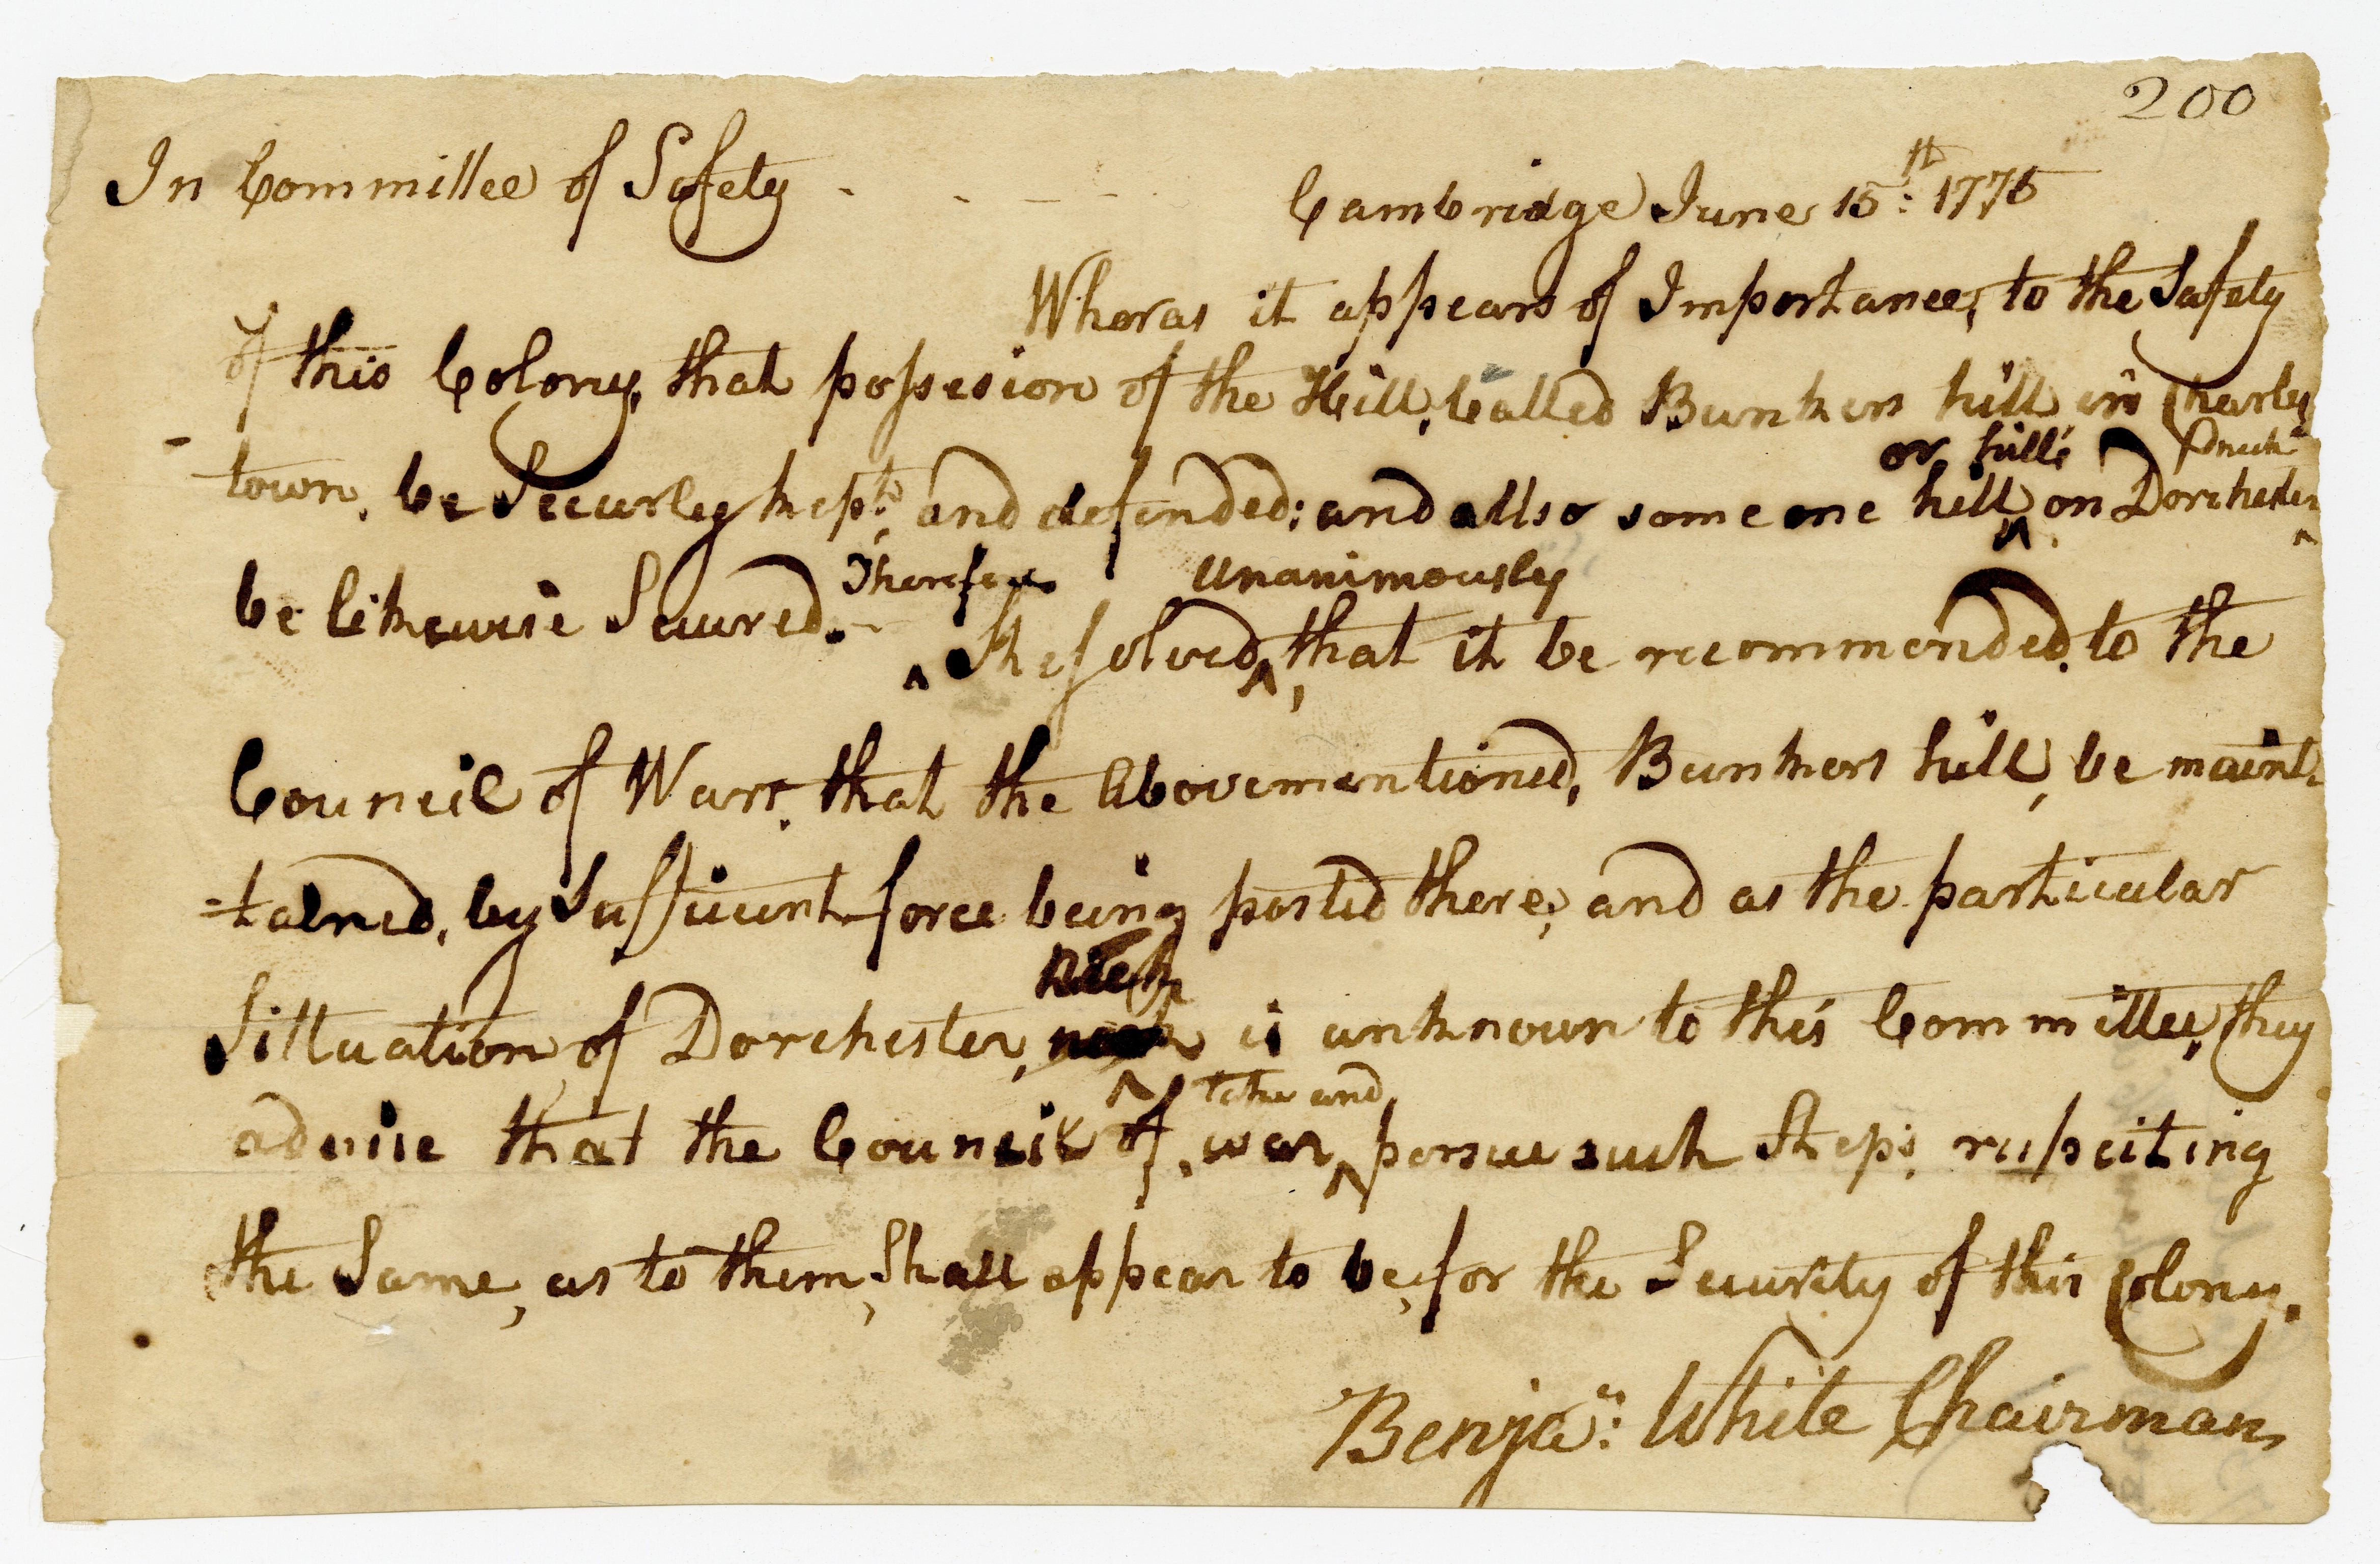 200
In Committee of Safety - - - -
Cambridge June 15th: 1775
Wheras it appears of Importance, to the Safety
of this Colony, that possesion of the Hill, Called Bunkers hill in Charles
- town, be Securley kept, and defended; and allso some one hill or hills on Dorchester Neck
be likewise Secured. - Therefore Resolved, unanimously that it be recommended, to the
Council of Warr, that the Abovementioned, Bunkers hill, be maint
=tained, by Sufficient force being posted there; and as the particular
Sittuation of Dorchester, neck Neck is unknown to this Committee, they
advise that the Council of, war, take and persue such Steps, respecting
the Same, as to them, Shall appear to be, for the Security of this Colony.
Benja:n White Chairman